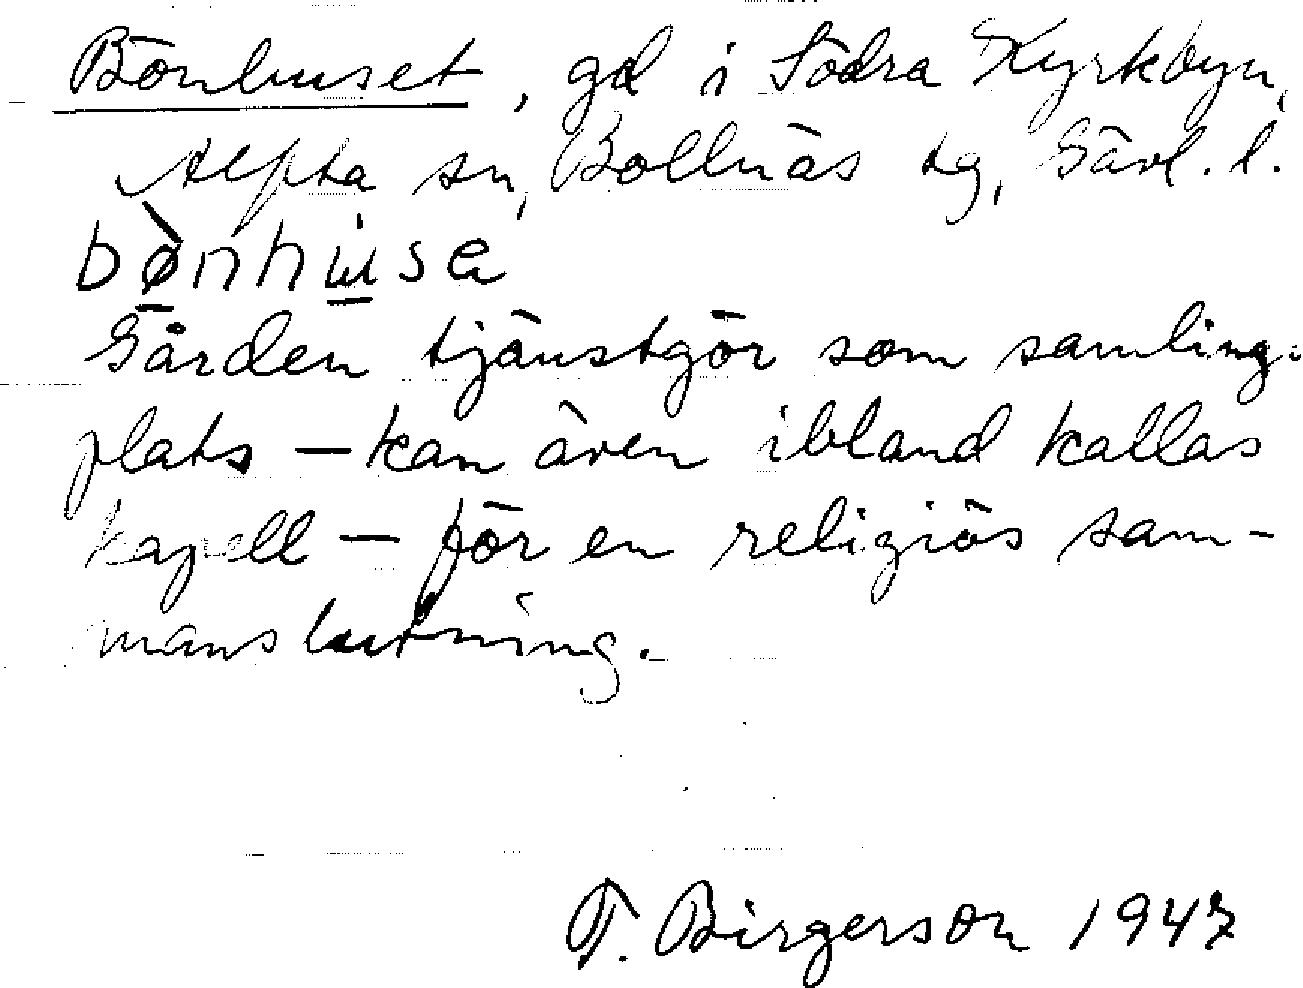 Bönhuset, gd i Södra Kyrkbyn,
Alfta sn, Bollnäs tg, Gävl. l.
bø̀nhu̇sa
Gården tjänstgör som samlings-
plats – kan även ibland kallas
kapell – för en religiös sam-
manslutning.
T. Birgerson 1947